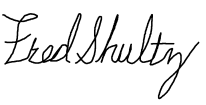 Fred Shultz